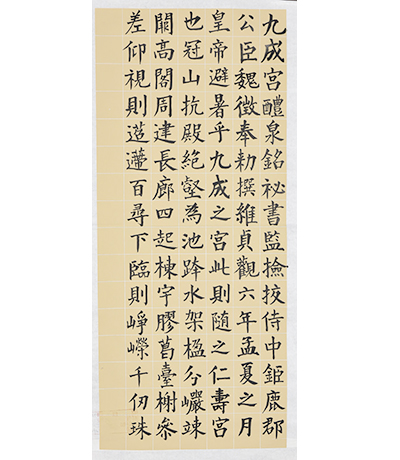 九成宮醴泉銘祕書監撿挍侍中鉅鹿郡
公臣魏徵奉勅撰維貞觀六年孟夏之月
皇帝避暑乎九成之宮此則隨之仁壽宮
也冠山抗殿絕壑為池跨水架楹分巖竦
闕高閣周建長廊四起棟宇膠葛臺榭參
差仰視則迢遰百尋下臨則崢嶸千仞珠